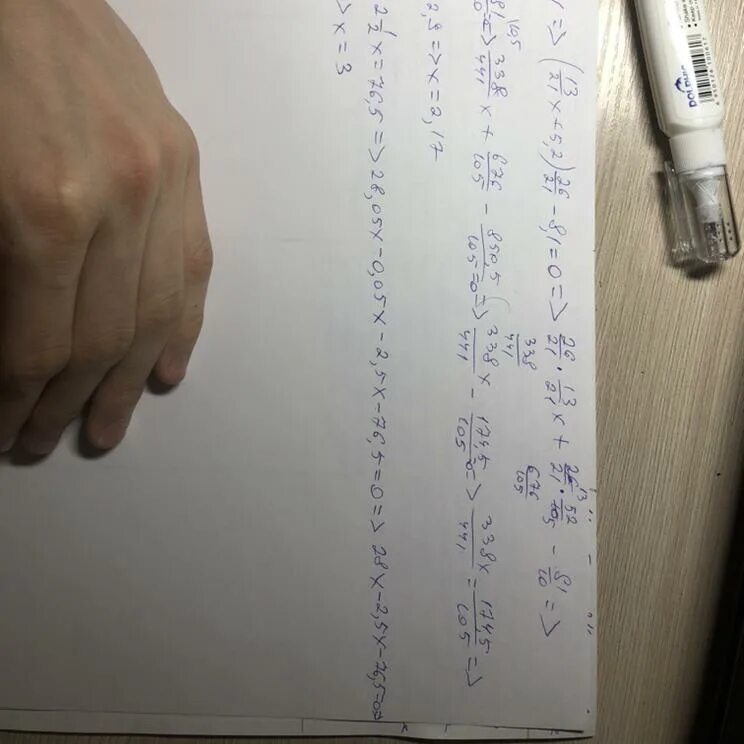 1 => (13/21 x + 5,2) 26/21 - 8,1 = 0 => 26/21 · 13/21 x + 26/21 · 52/10 - 81/10 =>
338/441 676/105
=> 338/441 x + 676/105 - 850,5/105 = 0 => 338x/441 - 174,5/105 = 0 => 338x/441 = 174,5/105 =>
2,8 => x = 2,17
2 1/2 x = 76,5 => 28,05x - 0,05x - 2,5x - 76,5 = 0 => 28x - 2,5x - 76,5 = 0 =>
> x = 3